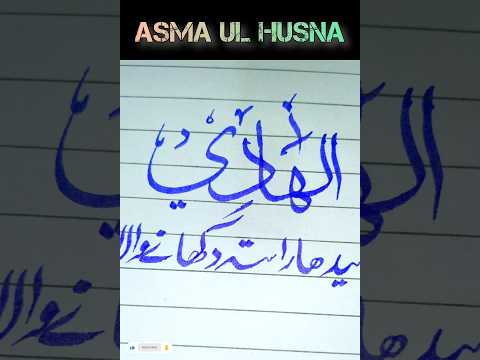 ASMA UL HUSNA
الهَادِي
سیدھا راستہ دکھانے والا